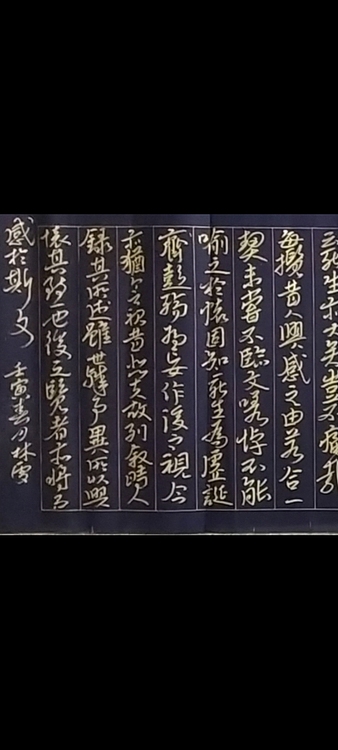 云死生亦大矣豈不痛哉
每攬昔人興感之由若合一
契未嘗不臨文嗟悼不能
喻之於懷固知一死生為虛誕
齊彭殤為妄作後之視今
亦猶今之視昔悲夫故列敘時人
錄其所述雖世殊事異所以興
懷其致一也後之覽者亦將有
感於斯文 壬寅春月林雪